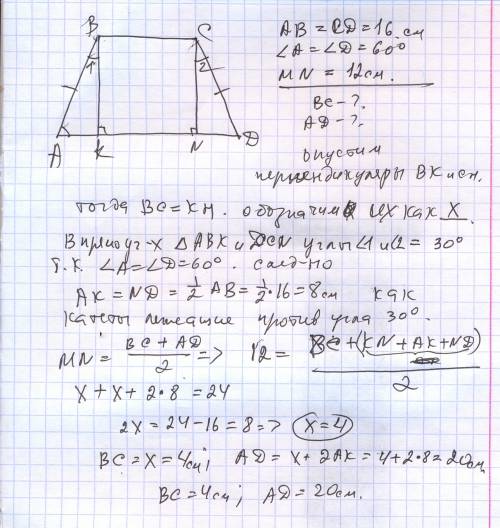 B C
1 2
A K N D
AB = CD = 16 см
∠A = ∠D = 60°
MN = 12 см.
BC - ?.
AD - ?.
опустим
перпендикуляры BK и CH.
тогда BC = KH. обозначим их как X.
В прямоуг-х △ABK и DCN углы ∠1 и ∠2 = 30°
т.к. ∠A = ∠D = 60°. след-но
AK = ND = 1/2 AB = 1/2 · 16 = 8 см как
катеты лежащие против угла 30°.
MN = (BC + AD)/2 => 12 = (BC + (KN + AK + ND))/2
X + X + 2·8 = 24
2X = 24 - 16 = 8 => X = 4
BC = X = 4 см; AD = X + 2AK = 4 + 2·8 = 20 см
BC = 4 см; AD = 20 см.